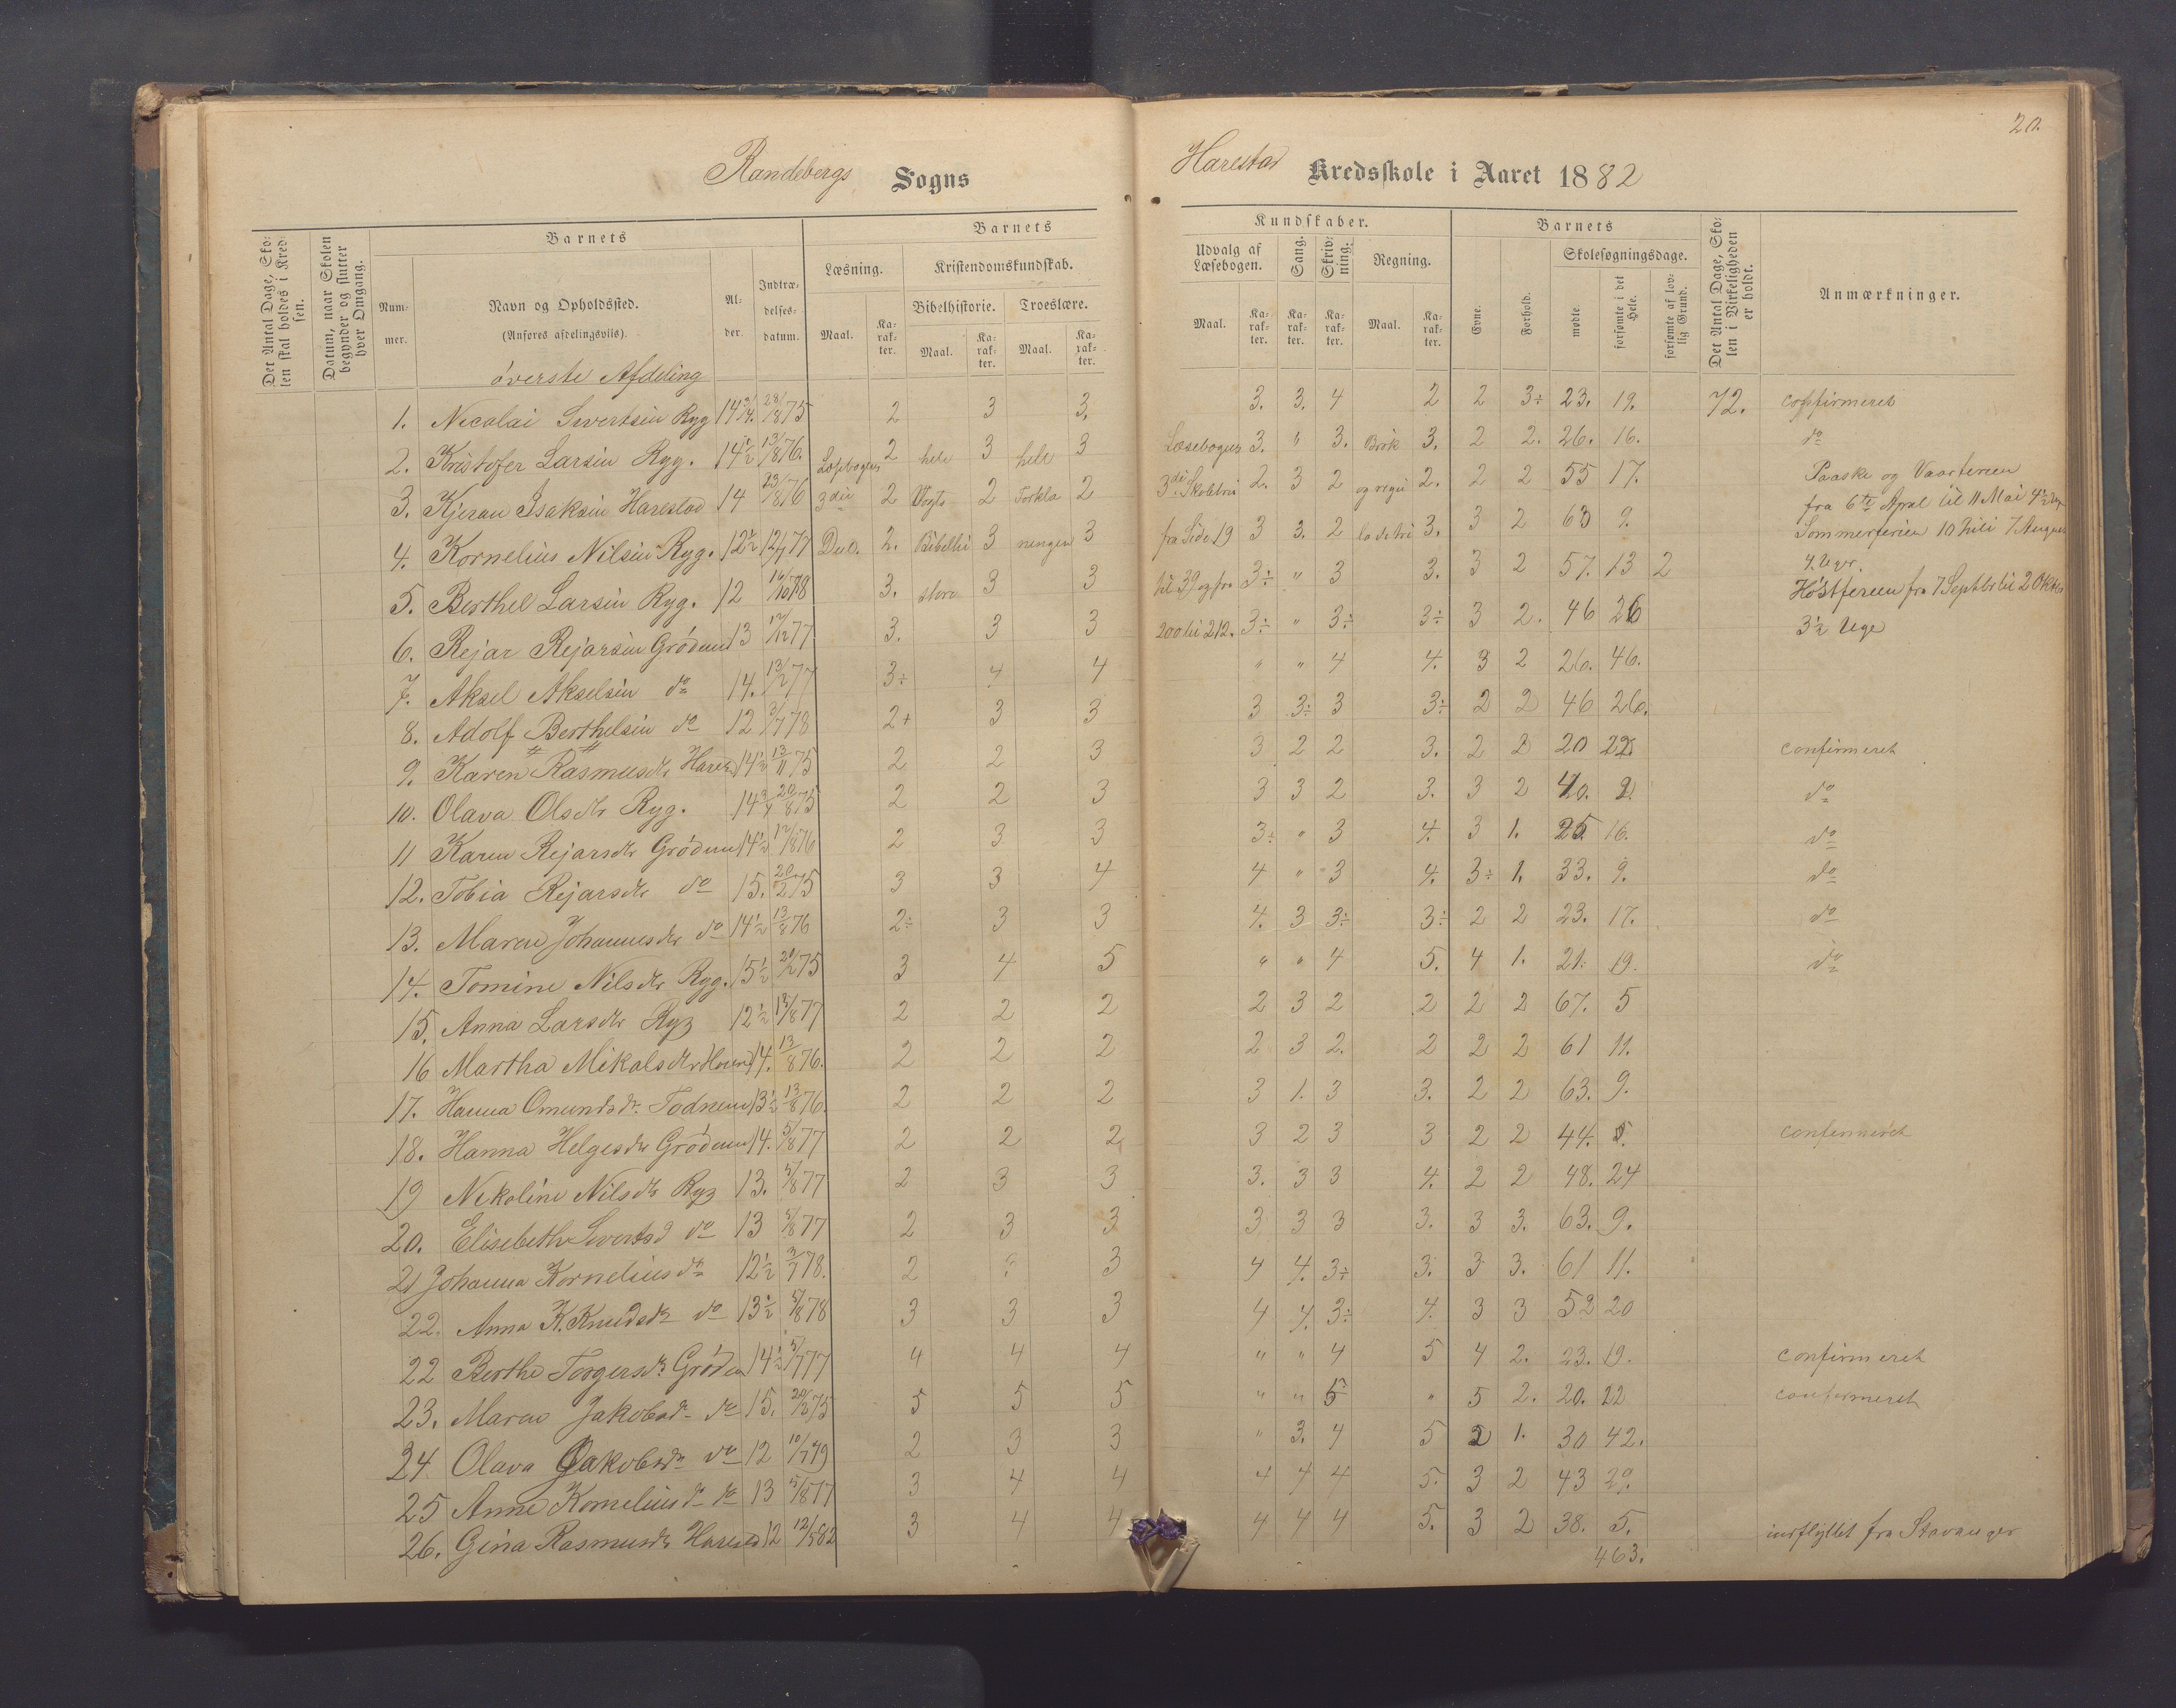 20.
Randebergs Sogns
Harestad Kredsskole i Aaret 1882
Det Antal Dage, Skolen skal holdes i Kredsen.
Datum, naar Skolen begynder og slutter hver Omgang.
Barnets
Nummer.
Navn og Opholdssted.
(Anføres afdelingsvis).
Alder.
Indtrædelsesdatum.
Barnets
Kundskaber.
Læsning.
Kristendomskundskab.
Bibelhistorie.
Troeslære.
Maal.
Karakter.
Maal.
Karakter.
Maal.
Karakter.
Udvalg af Læsebogen.
Sang.
Skrivning.
Regning.
Maal.
Karakter.
Karakter.
Karakter.
Maal.
Karakter.
Barnets
Evne.
Forhold.
Skolesøgningsdage.
mødte.
forsømte i det Hele.
forsømte af lovlig Grund.
Det Antal Dage, Skolen i Virkeligheden er holdt.
Anmærkninger.
øverste Afdeling
1. Nicolai Sivertsen Ryg 14 3/4. 28/8 75 2 3 3. 3. 3. 4 2 2 3÷ 23. 19. 72. confirmeret
2. Kristofer Larsen Ryg. 14 1/2 13/8 76. Læsebogens 2 hele 3 hele 3 Læsebogens 3. " 3. Brøk 3. 2 2. 26. 16. do
3. Kjeran Isaksen Harestad 14 23/8 76 3die 2 Vogts 2 Forkla 2 3die Skoletrin 2. 3 2 og regu 2. 2 2 55 17. Paaske og Vaarferien
fra 6te April til 11 Mai 4 1/2 Uge
4. Kornelius Nilsen Ryg. 12 1/2 12/7 77 Del. 2. Bibelhi 3 ningen 3 fra Side 19 3 3. 2 la de tri 3. 3 2 63 9. Sommerferien 10 Juli 7 August
4 Uger.
5. Berthel Larsen Ryg. 12 16/10 78 3. storie 3 3 til 39 og fra 3÷ " 3 3. 3 2 57. 13 2 Høstferien fra 7 Septbr til 2 Oktbr
6. Rejar Rejarsen Grødem 13 12/12 77 3. 3 3 200 til 212. 3÷ " 3÷ 3÷ 3 2. 46 26 3 1/2 Uge
7. Aksel Akselsen do 14. 13/2 77 3÷ 4 4 " " 4 4. 3 2 26. 46.
8. Adolf Berthelsen do 12 3/7 78 2+ 3 3 3 3÷ 3 3÷ 2 2 46 26.
9. Karen Rasmusdtr Harest 14 1/2 13/11 75 2 2 3 3 2 2 3. 2 2 20 22. confirmeret
10. Olava Olsdtr Ryg. 14 3/4 20/8 75 2 2 3 3 3 2 3. 3 2 40. 2. do
11 Karen Rejarsdtr Grødem 14 1/2 12/8 76 2 3 3 3÷ " 3 4. 3 1. 25 16. do
12. Tobia Rejarsdtr do 15. 20/2 75 3 3 4 4 " 3 4. 3÷ 1. 33. 9. do
13. Maren Johannesdtr do 14 1/2 13/8 76 2÷ 3 3 4. 3 3÷ 3÷ 2 2 23. 17. do
14. Tomine Nilsdtr Ryg. 15 1/2 20/2 75 3 4 5 " " 4 5. 4 1. 21. 19. do
15. Anna Larsdtr Ryg 12 1/2 13/8 77 2 2 2 2 3 2 2 2 2 67. 5
16 Martha Mikalsdtr 14. 13/8 76. 2 2 2 2 3 2. 2 2 2 61 11.
17. Hanna Omundsdr. Todnem 13 1/2 13/8 76. 2 2 2 3 1. 3 3. 2 2 63. 9.
18. Hanna Helgesdtr Grødem 14. 5/8 77 2 2 2 3 2 3 3 2 2 44. 5. confirmeret
19 Nikoline Nilsdtr Ryg 13. 5/8 77 2 3 3 3. 3 3 4. 2 2 48. 24
20. Elisebeth Sivertsd do 13 5/8 77 2 3 3 3 3 3 3. 3 3. 63. 9.
21 Johanna Kornelius do 12 1/2 3/7 78. 2 3 4 4. 3÷ 3. 3 3. 61 11.
22. Anna K. Knudsdtr do 13 1/2 5/8 78 3 3 3 4 4. 3÷ 4. 3 3 52 20
22 Berthe Torgersdr Grødem 14 1/2 5/7 77 4 4 4 " " 4 5 4 2. 23. 19. confirmeret
23. Maren Jakobsdr do 15. 20/2 75 5 5 5 " " 5 " 5 2. 20. 22 confirmeret
24 Olava Jakobsdr do 12 10/7 79 2 3 3 " 3. 4 5 2 1. 30 42.
25 Anne Kornelius dr do 13 5/8 77 3 4 4 4 4 4 5. 3 2 43 29.
26. Gina Rasmusdtr Harestd 12 12/5 82 3 4 4 4 4 4 5. 3 2 38. 5. indflyttet fra Stavanger
463.